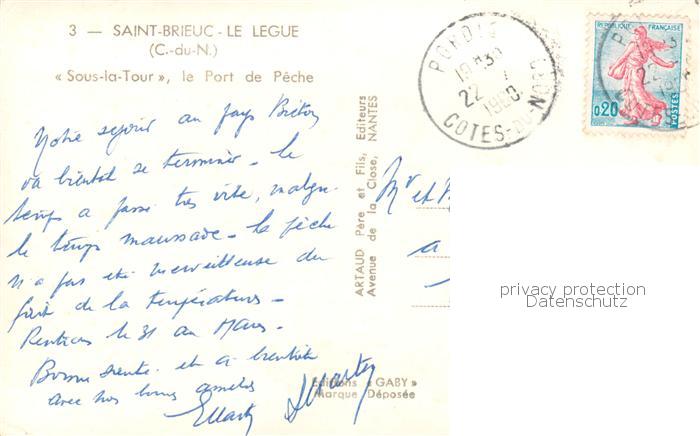 3 — SAINT-BRIEUC - LE LEGUE
(C.-du-N.)
« Sous-la-Tour », le Port de Pêche
Notre sejour au pays Breton
va bientôt se terminer - le
temps a passé très vite, malgré
le temps maussade - la pêche
n'a pas été merveilleuse du
fait de la température -
Rentrons le 31 au Mans.
Bonne santé et à bientôt
avec nos bonnes amitiés
ARTAUD Père et Fils, Editeurs
Avenue de la Close, NANTES
Editions « GABY »
Marque Déposée
Mr et
a
19 H30
22
1960
COTES-DU-NORD
REPUBLIQUE FRANÇAISE
0,20
POSTES
22
privacy protection
Datenschutz